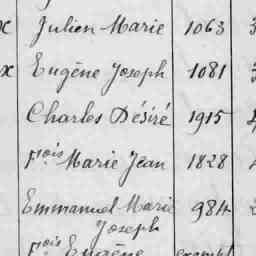 x Julien Marie 1063 3
x Eugène Joseph 1081 3
Charles Désiré 1915
Fois Marie Jean 1828
Emmanuel Marie 984 2
Joseph
Fois Eugène exempt